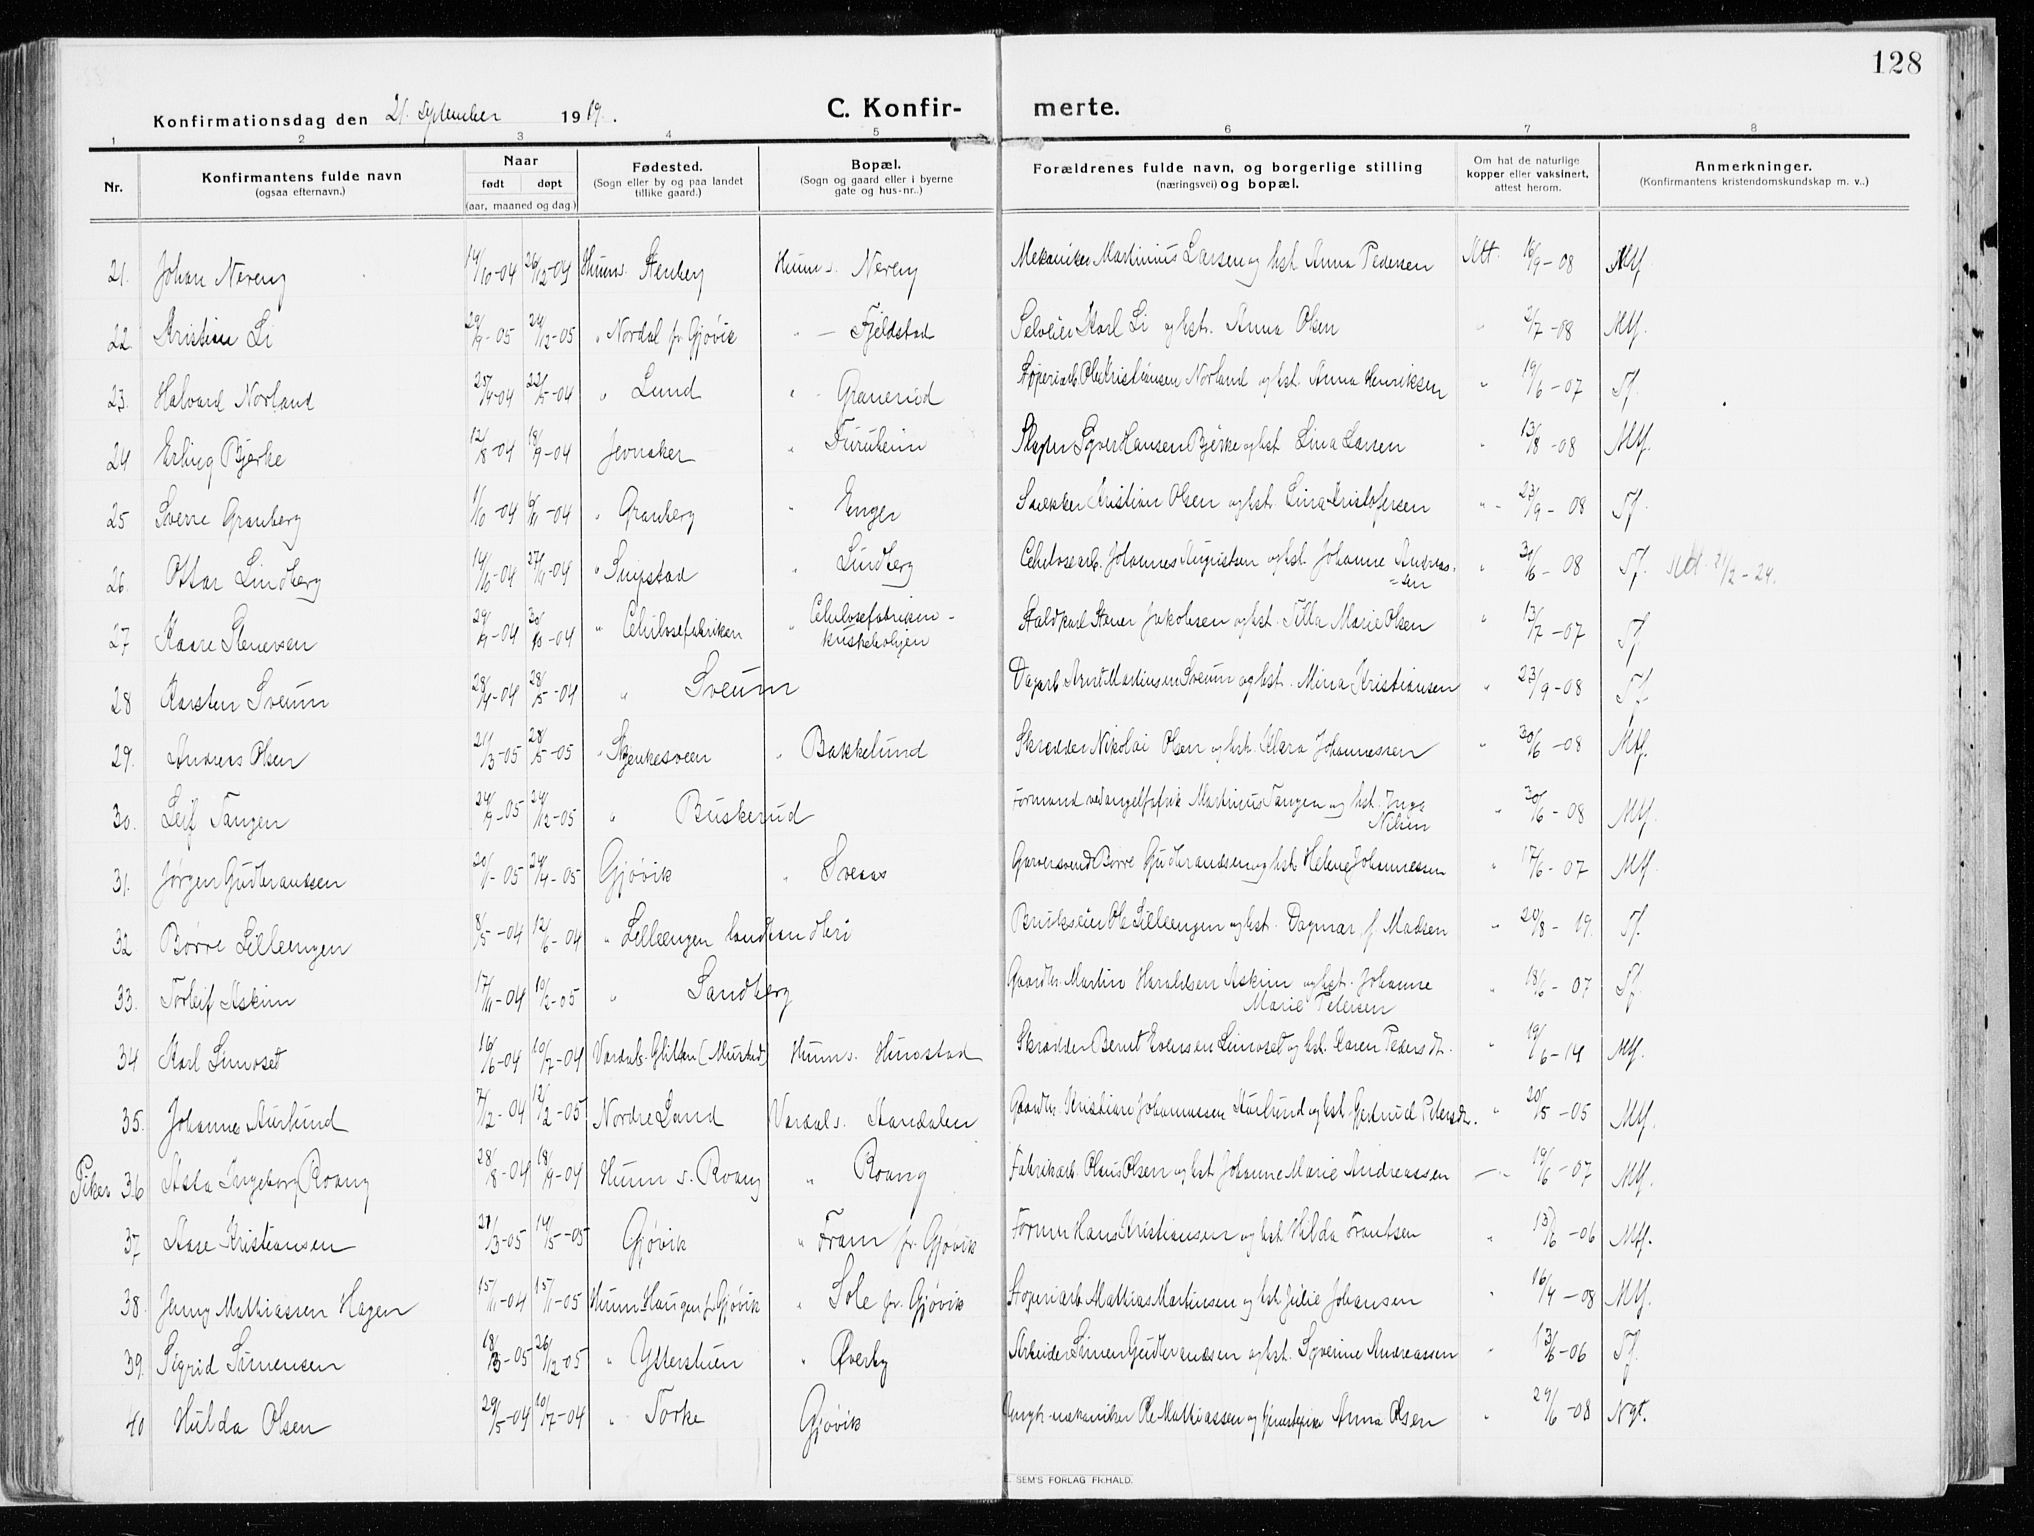 128
Konfirmationsdag den 21. September 1919.
C. Konfir- merte.
1 2 3 4 5 6 7 8
Nr.
Konfirmantens fulde navn
(ogsaa efternavn.)
Naar
født døpt
(aar, maaned og dag.)
Fødested.
(Sogn eller by og paa landet
tillike gaard.)
Bopæl.
(Sogn og gaard eller i byerne
gate og hus-nr..)
Forældrenes fulde navn, og borgerlige stilling
(næringsvei) og bopæl.
Om hat de naturlige
kopper eller vaksinert,
attest herom.
Anmerkninger.
(Konfirmantens kristendomskundskap m. v..)
21. Johan Nereng 14/10-04 26/12-04 Hunns. Stenberg Hunn s. Nereng Mekaniker Martinius Larsen og hst. Anna Pedersen Att. 16/9-08 Mtf.
22. Kristine Li 29/9-05 24/12-05 " Nordal pr. Gjøvik " - Fjeldstad Selveier Karl Li og hst. Anna Olsen " 2/7-08 Mtf.
23. Halvard Norland 25/4-04 22/5-04 " Lund " Granerud Støperiarb. Ole Kristiansen Norland og hst. Anna Henriksen " 19/6-07 Tf.
24 Erling Bjerke 12/8-04 18/9-04 Jevnaker " Furuheim Sigver Hansen Bjerke og hst. Lina Larsen " 13/8-08 Mtf.
25 Sverre Granberg 1/10-04 6/11-04 " Granberg " Enger Snekker Kristian Olsen og hst. Lina Kristofersen " 23/9-08 Tf.
26. Ottar Lindberg 14/10-04 27/11-04 " Smpstad " Lindberg Celulosearb. Johannes Augustsen og hst. Johanne Andreas- " 30/6-08 Tf. Att. 21/2-24.
=sen
27 Kaare Stenersen 29/9-04 30/10-04 " Celulosefabriken " Celulosefabriken - Staldkarl Stener Jakobsen og hst. Tilla Marie Olsen " 13/7-07 Tf
kuskeboligen
28 Karsten Sveum 28/4-04 28/5-04 " Sveum Dagarb. Arnt Martinsen Sveum og hst. Mina Kristiansen " 23/9-08 Tf.
29. Andreas Olsen 21/3-05 28/5-05 " Skjenkesveen " Bakkelund Skrædder Nikolai Olsen og hst. Klara Johannessen " 30/6-08 Mtf.
30. Leif Tangen 24/9-05 24/12-05 " Buskerud Formand ved angelfabrik Martinius Tangen og hst. Inga " 30/6-08 Mtf.
Nilsen
31. Jørgen Gudbrandsen 20/1-05 24/4-05 Gjøvik " Sveaas Garversvend Børre Gudbrandsen og hst. Helene Johannessen " 17/6-07 Mtf.
32 Børre Lilleengen 8/5-04 12/6-04 " Lilleengen landhandleri Brukseier Ole Lilleengen og hst. Dagmar f. Madsen " 20/8-19. Tf.
33. Torleif Askim 17/11-04 10/2-05 " Sandberg Gaardbr. Martin Haraldsen Askim og hst. Johanne " 18/6-07 Tf.
Marie Petersen
34 Karl Limoset 16/6-04 10/7-04 Vardals. Glitten (Mustad) Hunn s. Hunstad Skrædder Bernt Evensen Limoset og hst. Karen Pedersdt. " 19/6-14 Mtf.
35. Johannes Aurlund 7/12-04 12/2-05 Nordre Land Vardal s. Aandalen Gaardbr. Kristian Johannessen Aurlund og hst. Gjertrud Petersdt. " 20/5-05 Mtf.
Piker 36 Asta Ingeborg Roang 28/8-04 18/9-04 Hunn s. Roang " Roang Fabrikarb. Olaus Olsen og hst. Johanne Marie Andreassen - " - 19/6-07 Mtf.
37 Aase Kristiansen 21/3-05 14/5-05 Gjøvik " Fram pr. Gjøvik Former Hans Kristiansen og hst. Hilda Frantsen " 13/6-06 Mtf.
38. Jenny Mathiassen Hagen 15/11-04 15/1-05 Hunn Haugen pr. Gjøvik " Sole pr. Gjøvik Støperiarb. Mathias Martinsen og hst. Julie Johansen " 16/4-08 Mtf.
39. Sigrid Simensen 18/3-05 26/12-05 " Ytterstuen " Øverby Arbeider Simen Gudbrandsen og hst. Syverine Andreassen " 13/6-06 Tf.
40 Hulda Olsen 29/5-04 10/7-04 " Torke Gjøvik Ungk. mekaniker Ole Mathiassen og tjenestepike Anna Olsen " 29/6-08 Ngt.
E. SEM'S FORLAG FR.HALD.